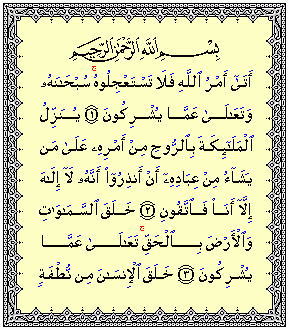 بِسْمِ ٱللَّهِ ٱلرَّحْمَٰنِ ٱلرَّحِيمِ
أَتَىٰٓ أَمْرُ ٱللَّهِ فَلَا تَسْتَعْجِلُوهُ ۚ سُبْحَٰنَهُۥ
وَتَعَٰلَىٰ عَمَّا يُشْرِكُونَ ﴿١﴾ يُنَزِّلُ
ٱلْمَلَٰٓئِكَةَ بِٱلرُّوحِ مِنْ أَمْرِهِۦ عَلَىٰ مَن
يَشَآءُ مِنْ عِبَادِهِۦٓ أَنْ أَنذِرُوٓا۟ أَنَّهُۥ لَآ إِلَٰهَ
إِلَّآ أَنَا۠ فَٱتَّقُونِ ﴿٢﴾ خَلَقَ ٱلسَّمَٰوَٰتِ
وَٱلْأَرْضَ بِٱلْحَقِّ ۚ تَعَٰلَىٰ عَمَّا
يُشْرِكُونَ ﴿٣﴾ خَلَقَ ٱلْإِنسَٰنَ مِن نُّطْفَةٍ